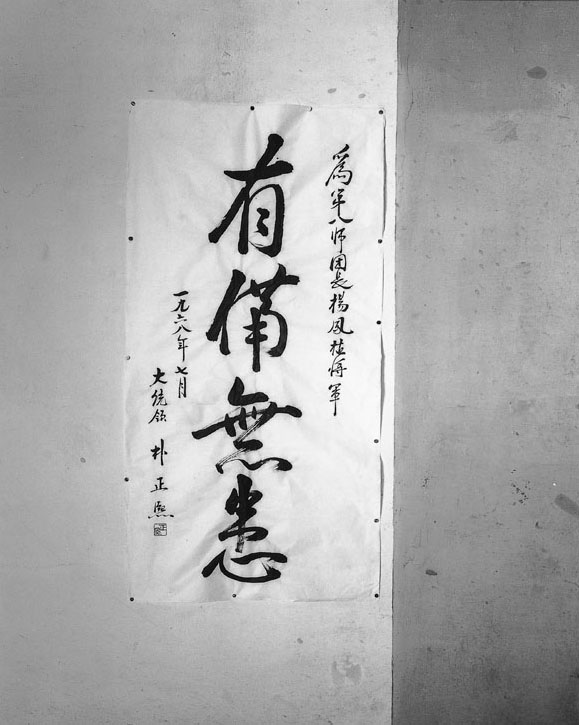 爲第八師團長楊鳳將軍
有備無患
一九六八年七月
大統領 朴正熙